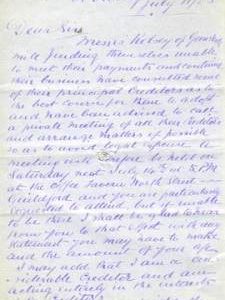 July
Dear Sirs
Messrs Kelsey of Gomshall
mill finding themselves unable
to meet their payments and continue
their business have consulted some
of their principal Creditors as to
the best course for them to adopt
and have been advised to call
a private meeting of all the Creditors
and arrange matters if possible
so as to avoid legal expense the
meeting will be held on
Saturday next July 14th at
at the Coffee Tavern North Street
Guildford and you are particularly
requested to attend but if unable
to be there I shall be glad to hear
from you to that effect with any
statement you may have to make
and the amount of your
I may add that I am a con
siderable Creditor and am
acting entirely in the interests